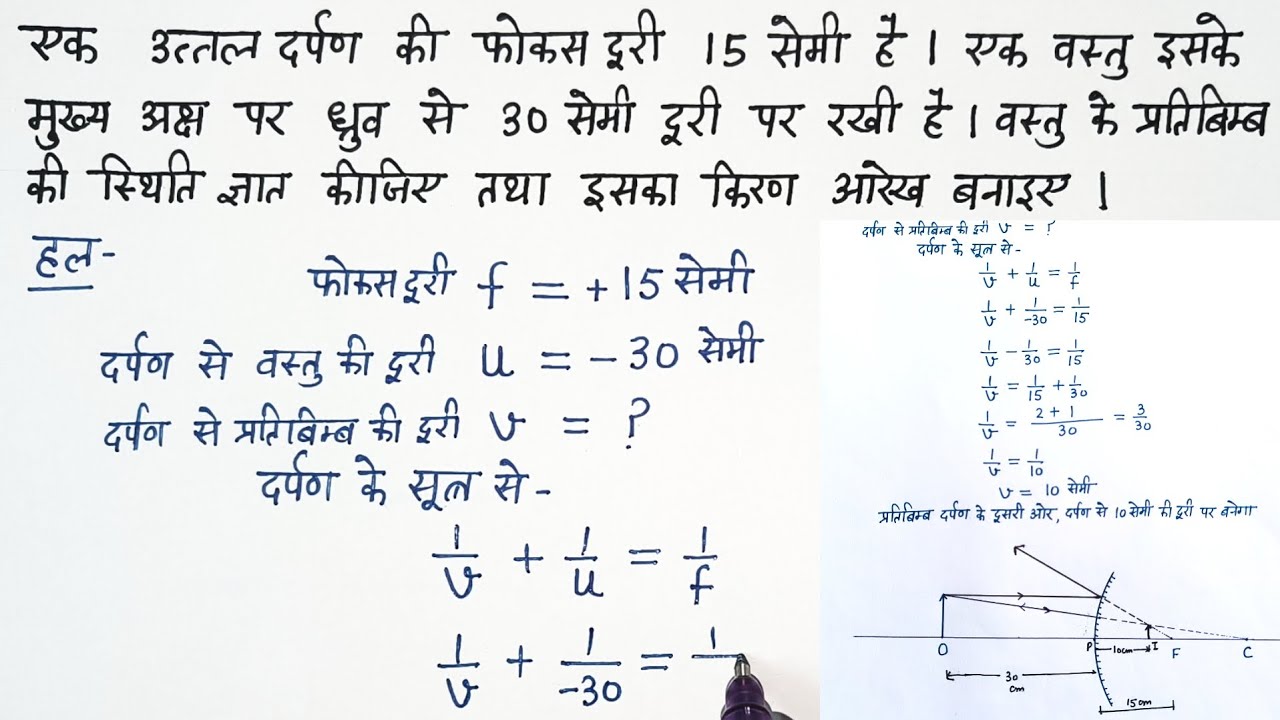 एक उत्तल दर्पण की फोकस दूरी 15 सेमी है। एक वस्तु इसके
मुख्य अक्ष पर ध्रुव से 30 सेमी दूरी पर रखी है। वस्तु के प्रतिबिम्ब
की स्थिति ज्ञात कीजिए तथा इसका किरण आरेख बनाइए।
हल-
फोकस दूरी f = +15 सेमी
दर्पण से वस्तु की दूरी u = -30 सेमी
दर्पण से प्रतिबिम्ब की दूरी v = ?
दर्पण के सूत्र से -
1/v + 1/u = 1/f
1/v + 1/-30 = 1/
दर्पण से प्रतिबिम्ब की दूरी v = ?
दर्पण के सूत्र से -
1/v + 1/u = 1/f
1/v + 1/-30 = 1/15
1/v - 1/30 = 1/15
1/v = 1/15 + 1/30
1/v = 2+1/30 = 3/30
1/v = 1/10
v = 10 सेमी
प्रतिबिम्ब दर्पण के दूसरी ओर, दर्पण से 10 सेमी की दूरी पर बनेगा
O P 10cm I F C
30 cm
15cm